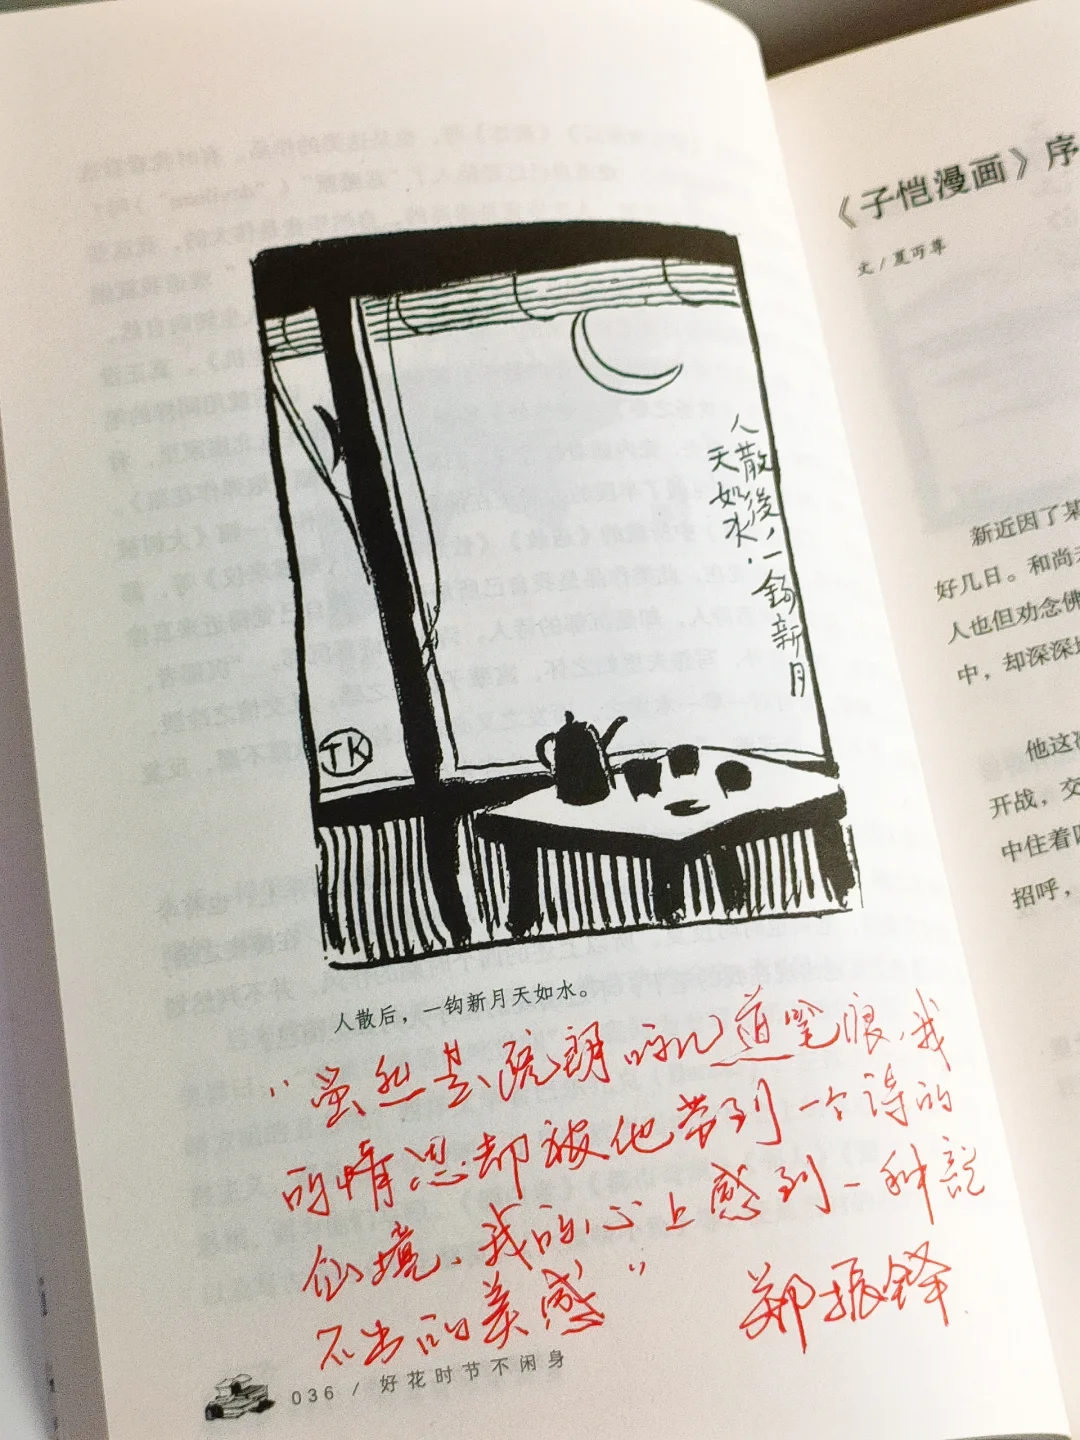 人散後,一鈎新月
天如水.
TK
人散后，一钩新月天如水。
“虽然是疏朗的几道笔痕,我
的情思却被他带到一个诗的
仙境,我的心上感到一种说
不出的美感”
郑振铎
036 / 好花时节不闲身
《子恺漫画》序
文 / 夏丏尊
新近因了某
好几日。和尚
人也但劝念佛
中，却深深
他这
开战，交
中住着
招呼，